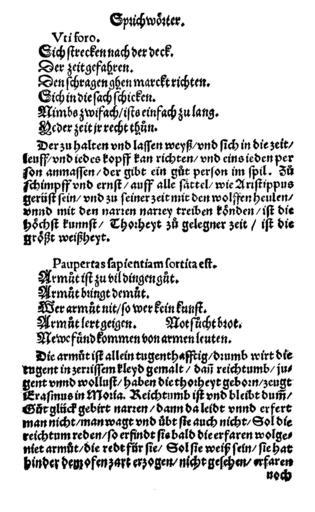 Sprichwörter.
Vti foro.
Sich strecken nach der deck.
Der zeit gefahren.
Den schragen ghen marckt richten.
Sich in die sach schicken.
Nimbs zwifach/ists einfach zu lang.
Yeder zeit jr recht thůn.
Der zu halten vnd lassen weyß/vnd sich in die zeit/
leuff/vnd iedes kopff kan richten/vnd eins ieden per
son anmassen/der gibt ein gůt person im spil. Zů
schimpff vnd ernst/auff alle sättel/wie Aristippus
gerüst sein/vnd zu seiner zeit mit den wolffen heulen/
vnnd mit den narren narrey treiben könden/ist die
höchst kunnst/ Thorheyt zů gelegner zeit / ist die
größt weißheyt.
Paupertas sapientiam sortita est.
Armůt ist zu vil dingen gůt.
Armůt bringt demůt.
Wer armůt nit/so wer kein kunst.
Armůt lert geigen. Not sůcht brot.
Newe fünd kommen von armen leuten.
Die armůt ist allein tugenthafftig/drumb wirt die
tugent in zerissem kleyd gemalt/ dañ reichtumb/ju⸗
gent vnnd wollust/haben die thorheyt geborn/zeugt
Erasmus in Moria. Reichtumb ist vnd bleibt dum̃/
Gůt glück gebirt narren/dann da leidt vnnd erfert
man nicht/man wagt vnd übt sie auch nicht/Sol die
reichtum reden/so erfindt sie bald die erfaren wolge⸗
niet armůt/die redt für sie/ Sol sie weiß sein/sie hat
hinder dem ofen zart erzogen/nicht gesehen/erfaren
noch